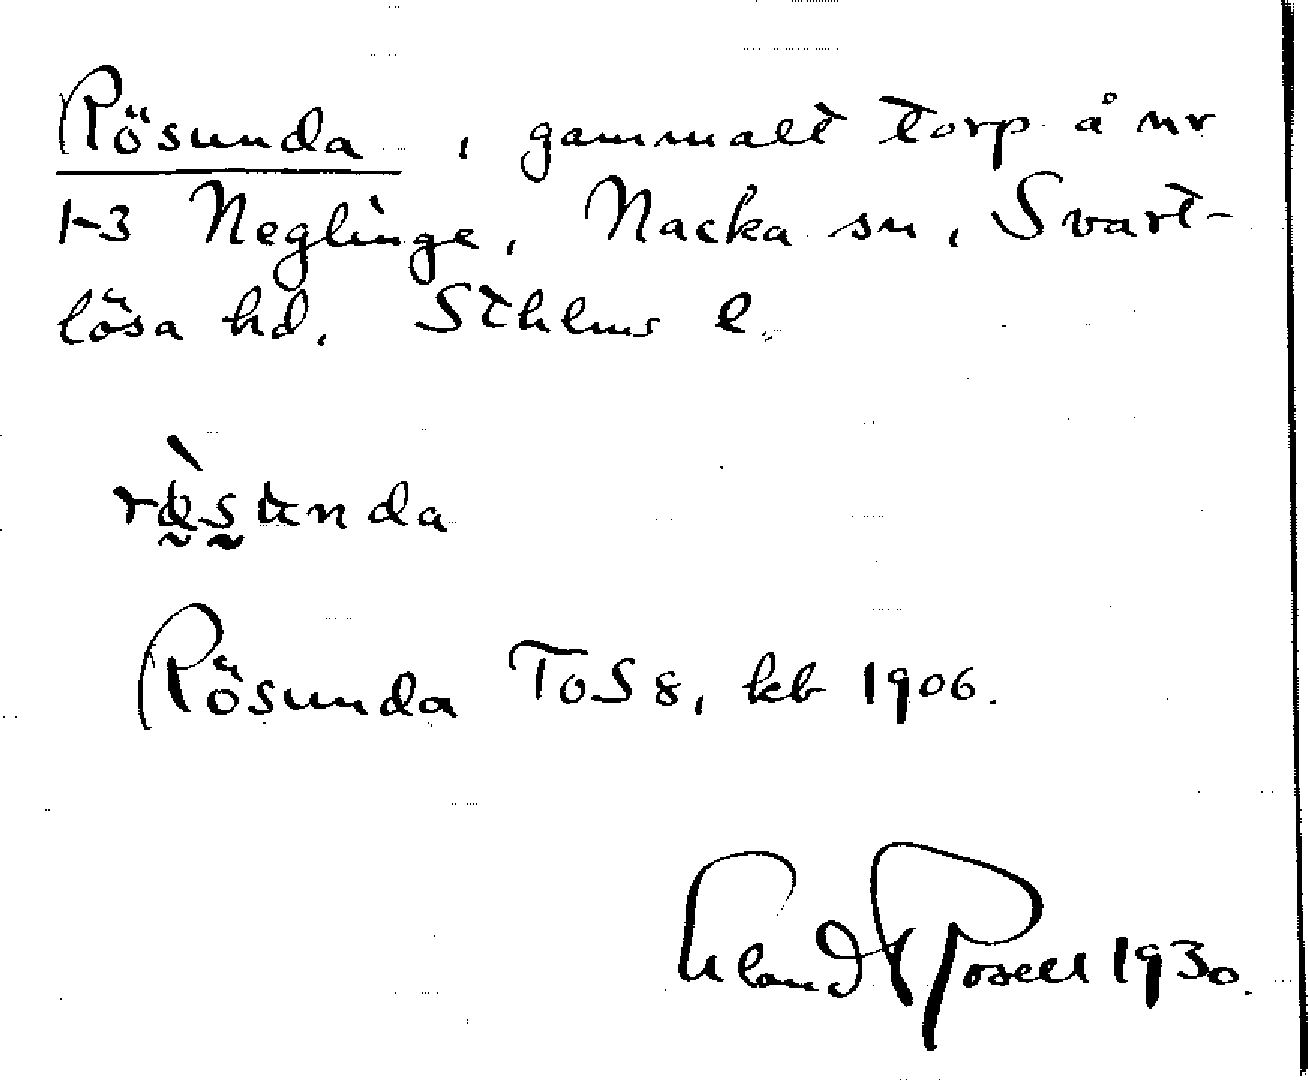 Rösunda, gammalt torp å nr
1-3 Neglinge, Nacka sn, Svart-
lösa hd. Sthlms l.
Rösunda ToS 8, kb 1906.
Erland Rosell 1930.